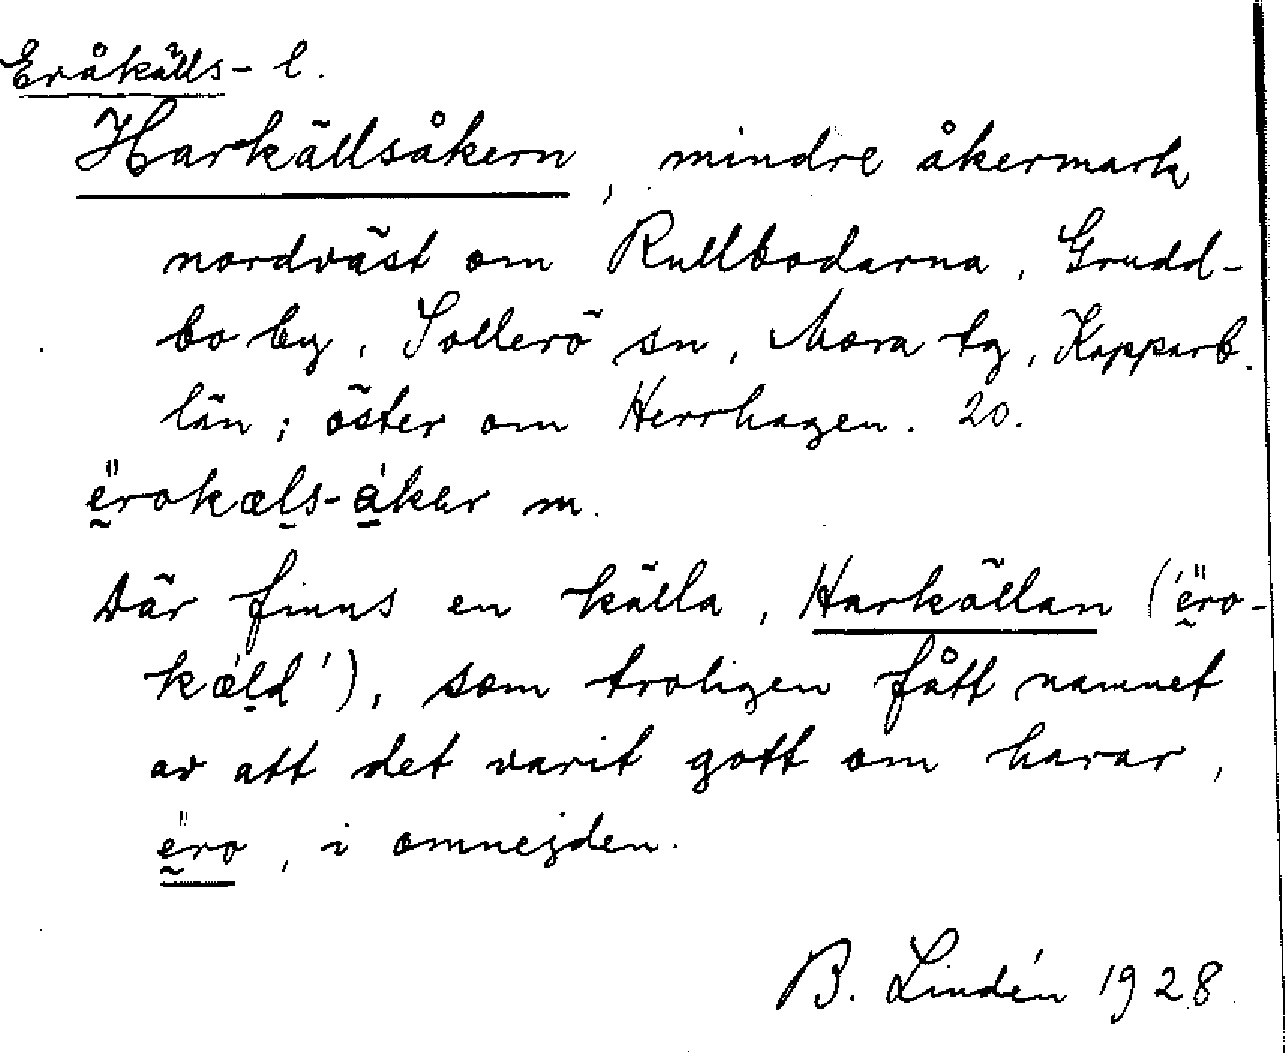 Eråkälls- l.
Harkällsåkern, mindre åkermark
nordväst om Rullbodarna, Grudd-
bo by, Sollerö sn, Mora tg, Kopparb.
län; öster om Herrhagen. 20.
ërokæls-åker m.
Där finns en källa, Harkällan ('ëro-
kæld'), som troligen fått namnet
av att det varit gott om harar,
ëro, i omnejden.
B. Lindén 1928